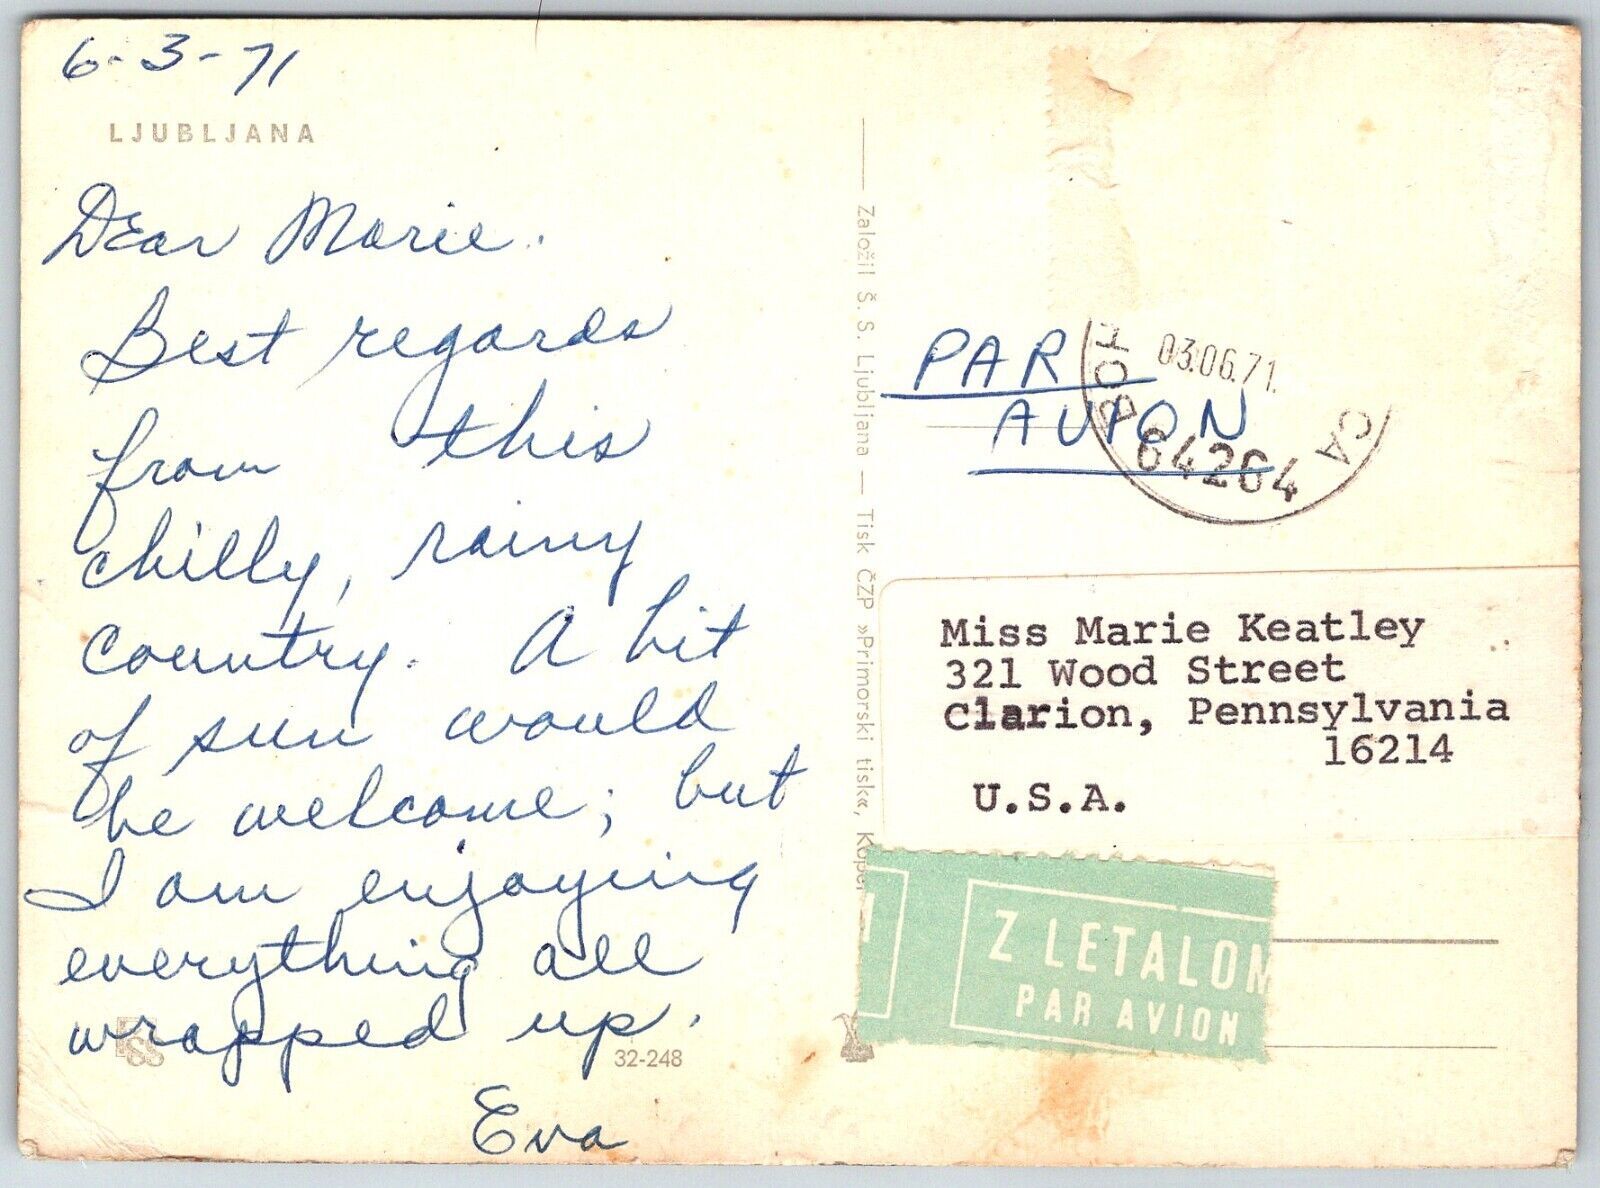 6-3-71
LJUBLJANA
Dear Marie.
Best regards
from this
chilly, rainy
country. A bit
of sun would
be welcome; but
I am enjoying
everything all
wrapped up.
Eva
32-248
Založil Š. S. Ljubljana — Tisk ČZP »Primorski tisk«, Koper
PAR
AVION
03.06.71.
BOH CA
64264
Miss Marie Keatley
321 Wood Street
Clarion, Pennsylvania
16214
U.S.A.
Z LETALOM
PAR AVION